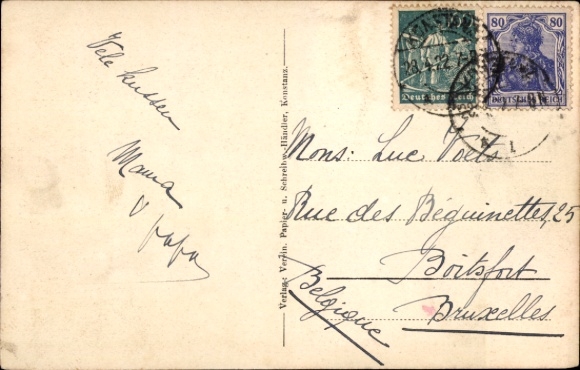 Vele kussen
Mama
Papa
Verlag: Verein. Papier- u. Schreibw.-Händler, Konstanz.
KONSTANZ
28.4.22.7
Deutsches Reich
80 80
DEUTSCHES REICH
Mons: Luc Voets
Rue des Béguinettes, 25
Boitsfort
Bruxelles
Belgique